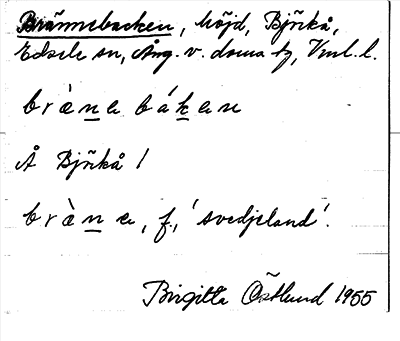 Brännebacken, höjd, Björkå,
Edsele sn, Ång. v. doms tg, Vnl. l.
bràne báken
Å Björkå /
bràne, f., 'svedjeland'.
Birgitta Östlund 1955